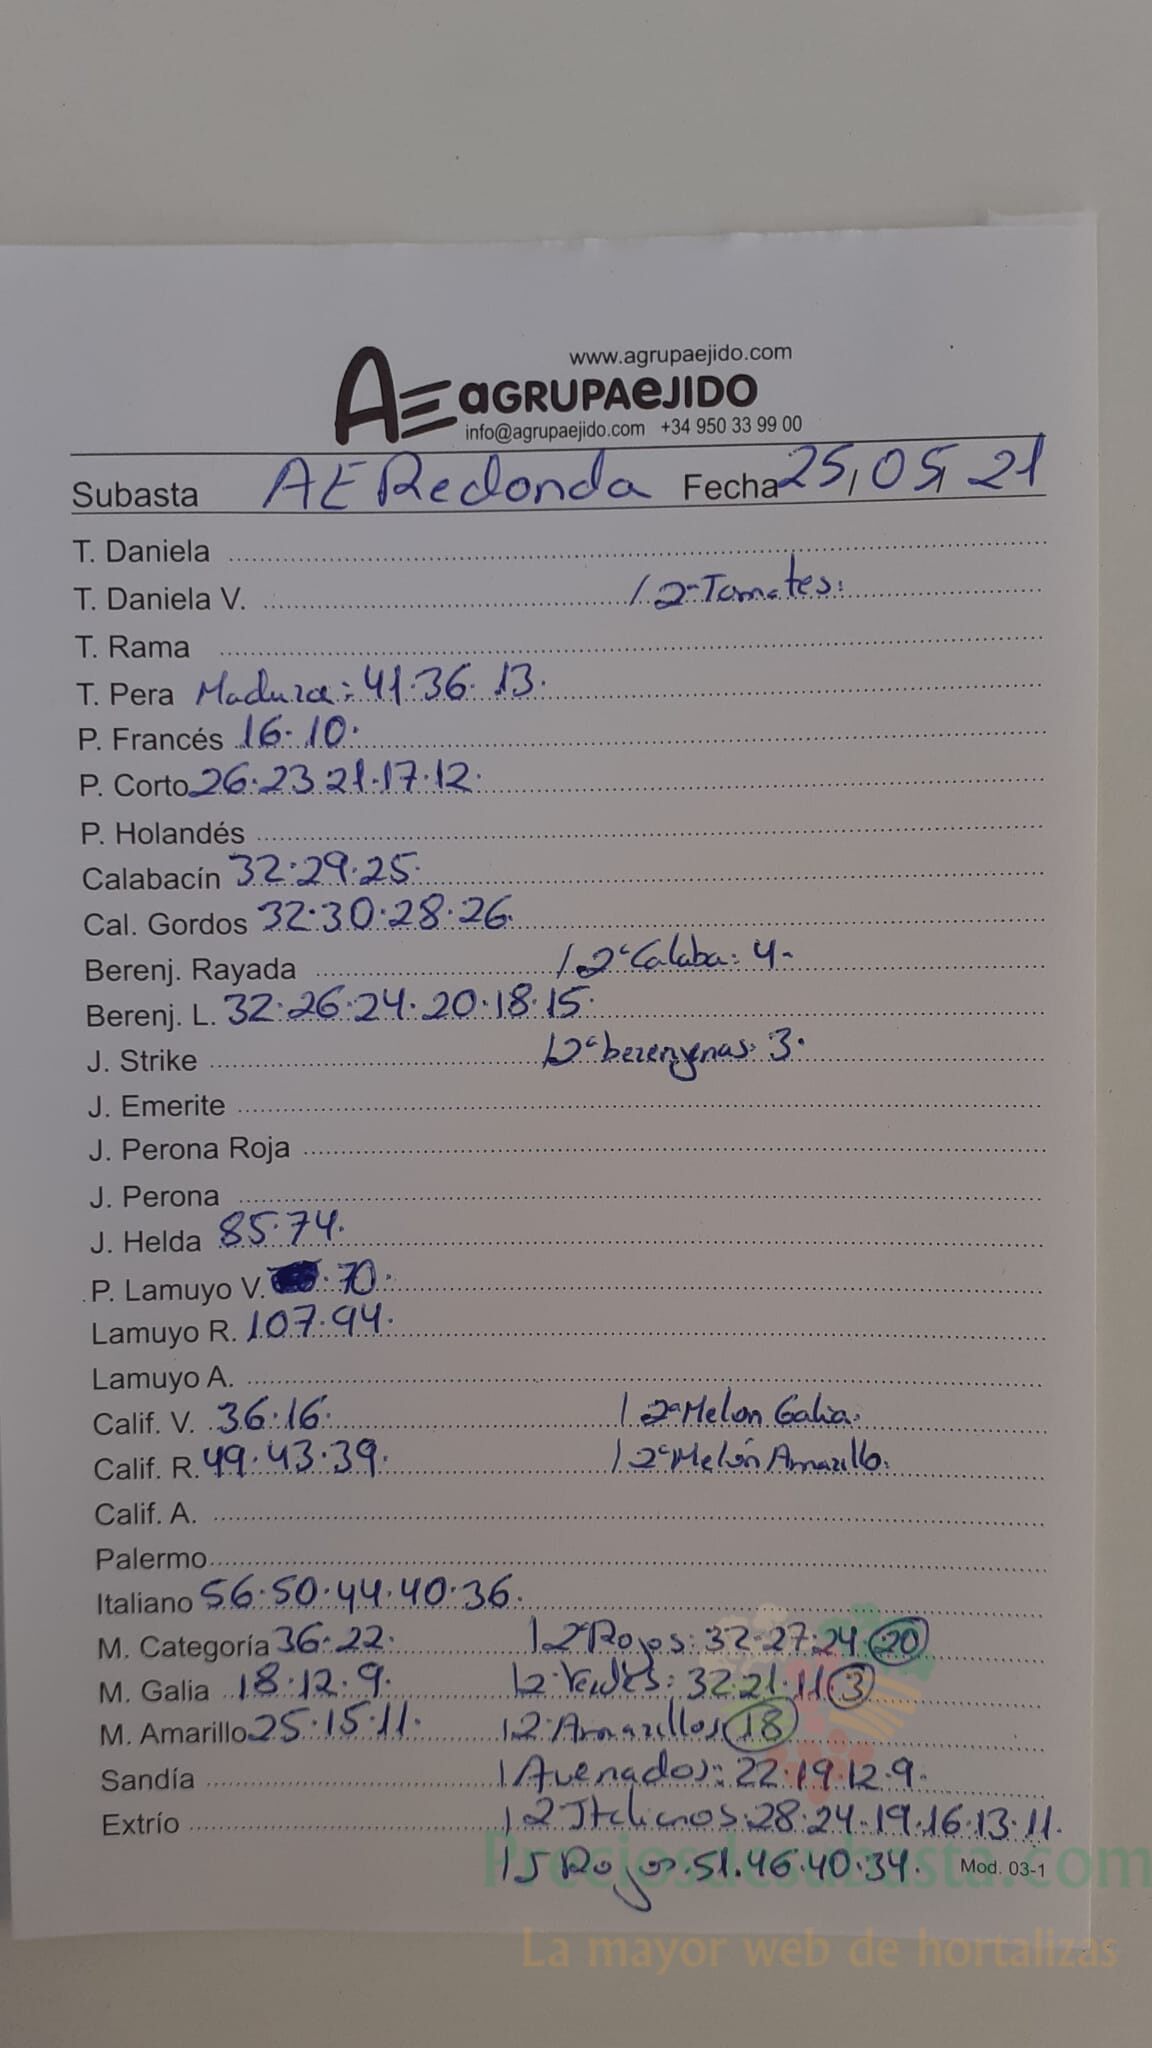 www.agrupaejido.com
AE aGRUPAeJIDO
info@agrupaejido.com +34 950 33 99 00
Subasta AE Redonda Fecha 25, 05, 21
T. Daniela
T. Daniela V. / 2ª Tomates:
T. Rama
T. Pera Madura: 41. 36. 13.
P. Francés 16. 10.
P. Corto 26. 23 21. 17. 12.
P. Holandés
Calabacín 32. 29. 25.
Cal. Gordos 32. 30. 28. 26.
Berenj. Rayada / 2ª Calaba: 4.
Berenj. L. 32. 26. 24. 20. 18. 15.
J. Strike / 2ª berenjenas: 3.
J. Emerite
J. Perona Roja
J. Perona
J. Helda 85. 74.
P. Lamuyo V. . 70.
Lamuyo R. 107. 94.
Lamuyo A.
Calif. V. 36. 16. / 2ª Melon Galia:
Calif. R. 49. 43. 39. / 2ª Melón Amarillo:
Calif. A.
Palermo
Italiano 56. 50. 44. 40. 36.
M. Categoría 36. 22. / 2ª Rojos: 32. 27. 24. 20
M. Galia 18. 12. 9. / 2ª Verdes: 32 21. 11 3
M. Amarillo 25. 15. 11. / 2ª Amarillos 18
Sandía / Avenados: 22. 19. 12. 9.
Extrío / 2 Italianos. 28. 24. 19. 16. 13. 11.
/ 5 Rojos. 51. 46. 40. 34. Mod. 03-1
Preciosdesubasta.com
La mayor web de hortalizas